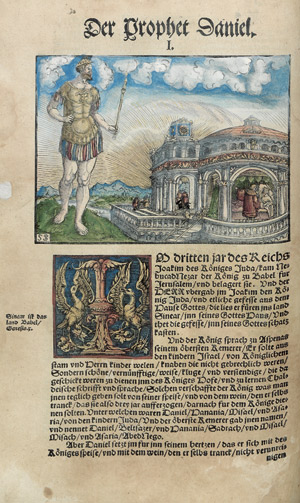 Der Prophet Daniel.
I.
JM dritten jar des Reichs
Joakim des Königes Juda/kam Ne-
bucadNezar der König zu Babel fur
Jerusalem/und belagert sie. Und der
HERR ubergab jm Joakim den Kö-
nig Juda/und etliche gefesse aus dem
Hause Gottes/die lies er füren jns land
Sinear/jnn seines Gottes Haus/Und
thet die gefesse/jnn seines Gottes schatz
kasten.
Sinear ist das
land Babel/
Und der König sprach zu Aspenas
seinem öbersten Kemerer/Er solte aus
den kindern Israel/von Königlichem
stam und Herrn kinder welen/knaben die nicht gebrechlich weren/
Sondern schöne/vernünfftige/weise/kluge/und verstendige/die da
geschickt weren zu dienen jnn des Königes Hofe/und zu lernen Chal-
deische schrifft und sprache/Solchen verschafft der König was man
jnen teglich geben solt von seiner speise/und von dem wein/den er selbst
tranck/das sie also drey jar aufferzogen/darnach fur dem Könige die-
nen solten. Unter welchen waren Daniel/Hanania/Misael/und Asa-
ria/von den kindern Juda/Und der öberste Kemerer gab jnen namen/
und nennet Daniel/Beltsazer/und Hanania/Sadrach/und Misael/
Mesach/und Asaria/AbedNego.
Aber Daniel setzt jm fur jnn seinem hertzen/das er sich mit des
Königes speise/und mit dem wein/den er selbs tranck/nicht verunrei-
nigen